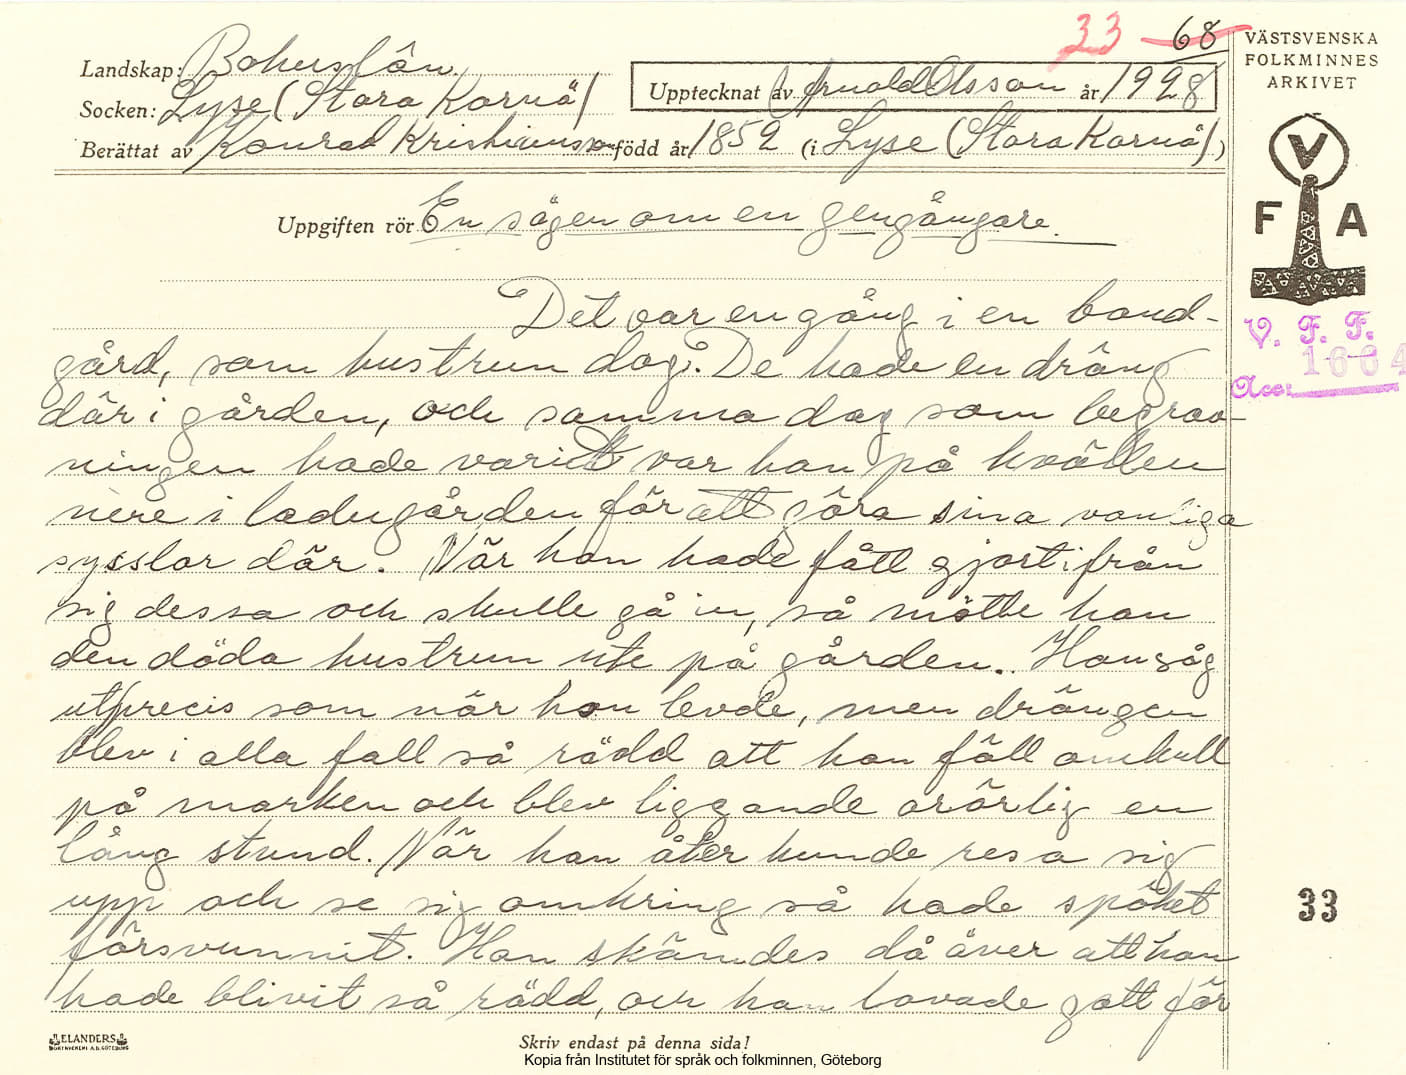 33 68
VÄSTSVENSKA
FOLKMINNES
ARKIVET
Landskap: Bohuslän.
Socken: Lyse (Stora Kornö)
Upptecknat av Arnold Olsson år 1928
Berättat av Konrad Kristiansson född år 1852 (i Lyse (Stora Kornö))
V
F A
Uppgiften rör En sägen om en gengångare.
V. F. F.
1664
Acc:
Det var en gång i en bond-
gård, som hustrun dog. De hade en dräng
där i gården, och samma dag som begrav-
ningen hade varit var han på kvällen
nere i ladugården för att göra sina vanliga
sysslor där. När han hade fått gjort ifrån
sig dessa och skulle gå in, så mötte han
den döda hustrun ute på gården. Hon såg
ut precis som när hon levde, men drängen
blev i alla fall så rädd att han föll omkull
på marken och blev liggande orörlig en
lång stund. När han åter kunde resa sig
upp och se sig omkring så hade spöket
försvunnit. Han skämdes då över att han
hade blivit så rädd, och han lovade gott för
33
ELANDERS
BOKTRYCKERI A.B. GÖTEBORG
Skriv endast på denna sida!
Kopia från Institutet för språk och folkminnen, Göteborg